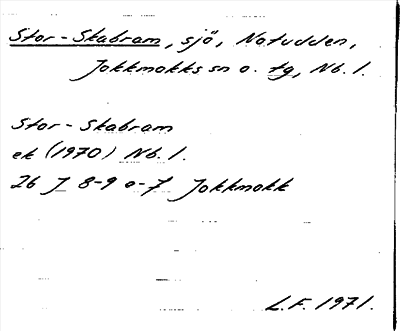 Stor-Skabram, sjö, Notudden,
Jokkmokks sn o. tg, Nb. l.
Stor-Skabram
ek (1970) Nb. l.
26 J 8-9 o-7 Jokkmokk
L.F. 1971.